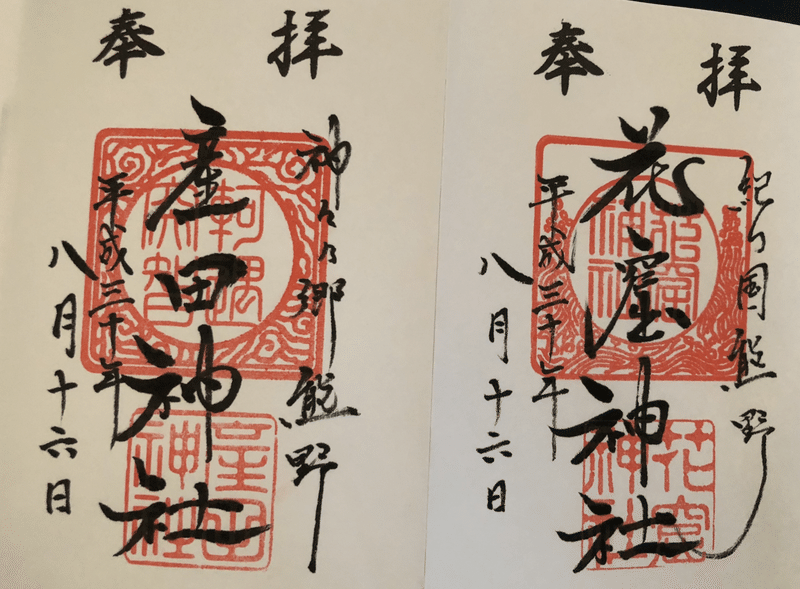 奉拝
紀乃国熊野
花窟神社
平成三十年
八月十六日
花窟
神社
花窟
神社
奉拝
神々乃郷熊野
産田神社
平成三十年
八月十六日
軻遇
突智
産田
神社